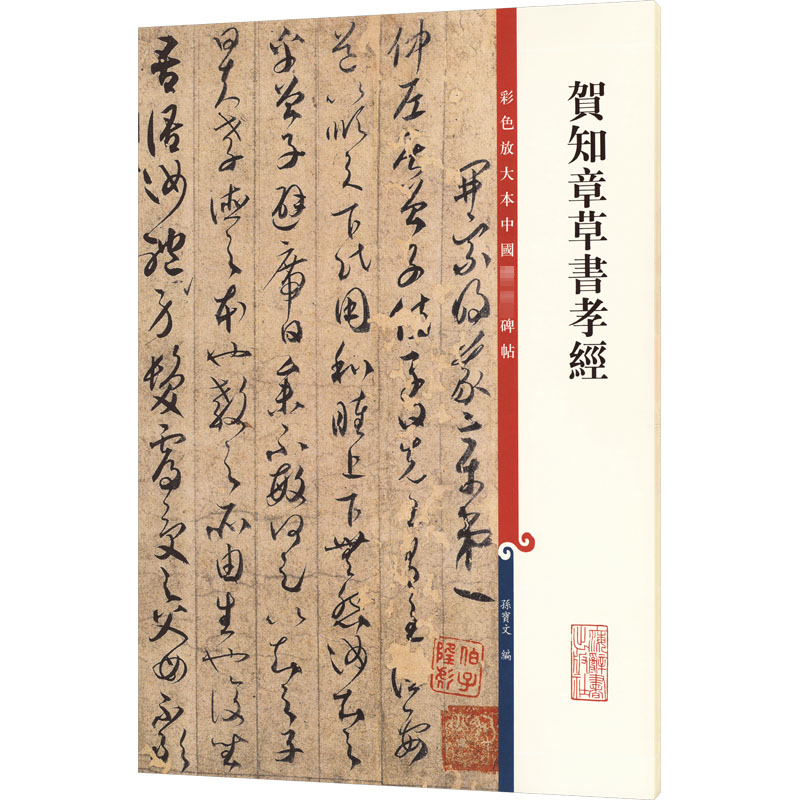 賀知章草書孝經
彩色放大本中國
碑帖
孫寶文 編
開宗明義章第一
仲尼居曾子侍子曰先王有至德要
道以順天下民用和睦上下無怨汝知之
乎曾子避席曰參不敏何足以知之子
曰夫孝德之本也教之所由生也復坐
吾語汝體身髮膚受之父母不敢